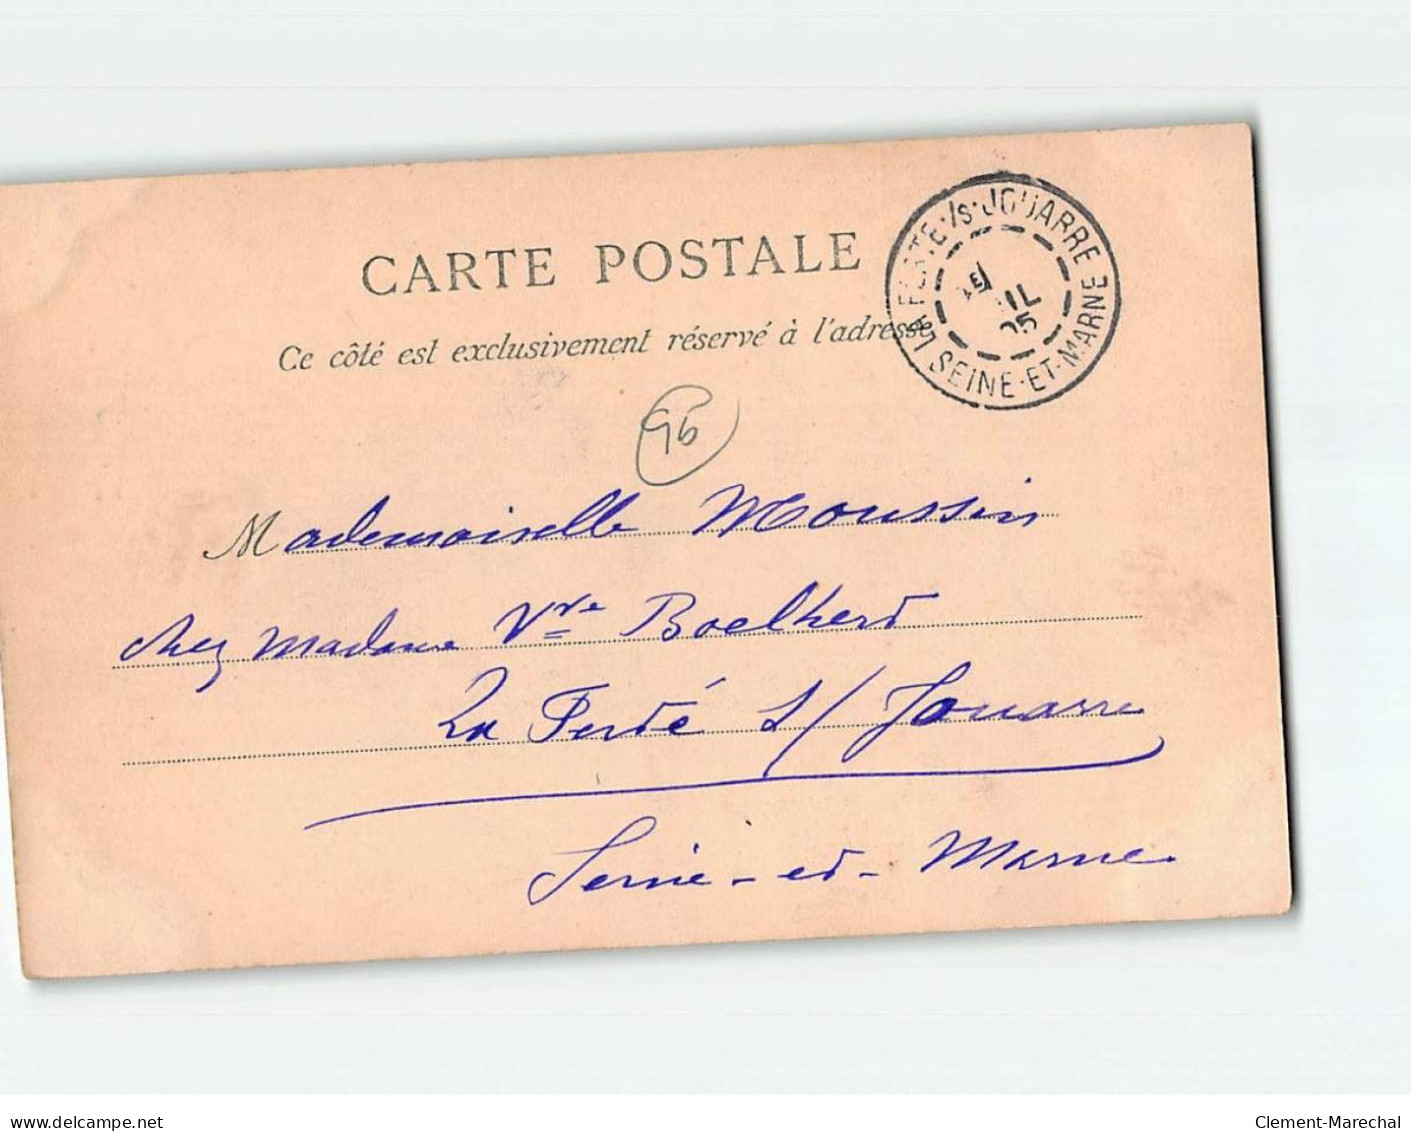 CARTE POSTALE
Ce côté est exclusivement réservé à l'adresse
LA FERTE-/S-JOUARRE
IL
05
SEINE-ET-MARNE
Mademoiselle Moussin
chez Madame Vve Boelherd
La Ferté s/ Jouarre
Seine-et-Marne
delcampe.net
Clement-Marechal